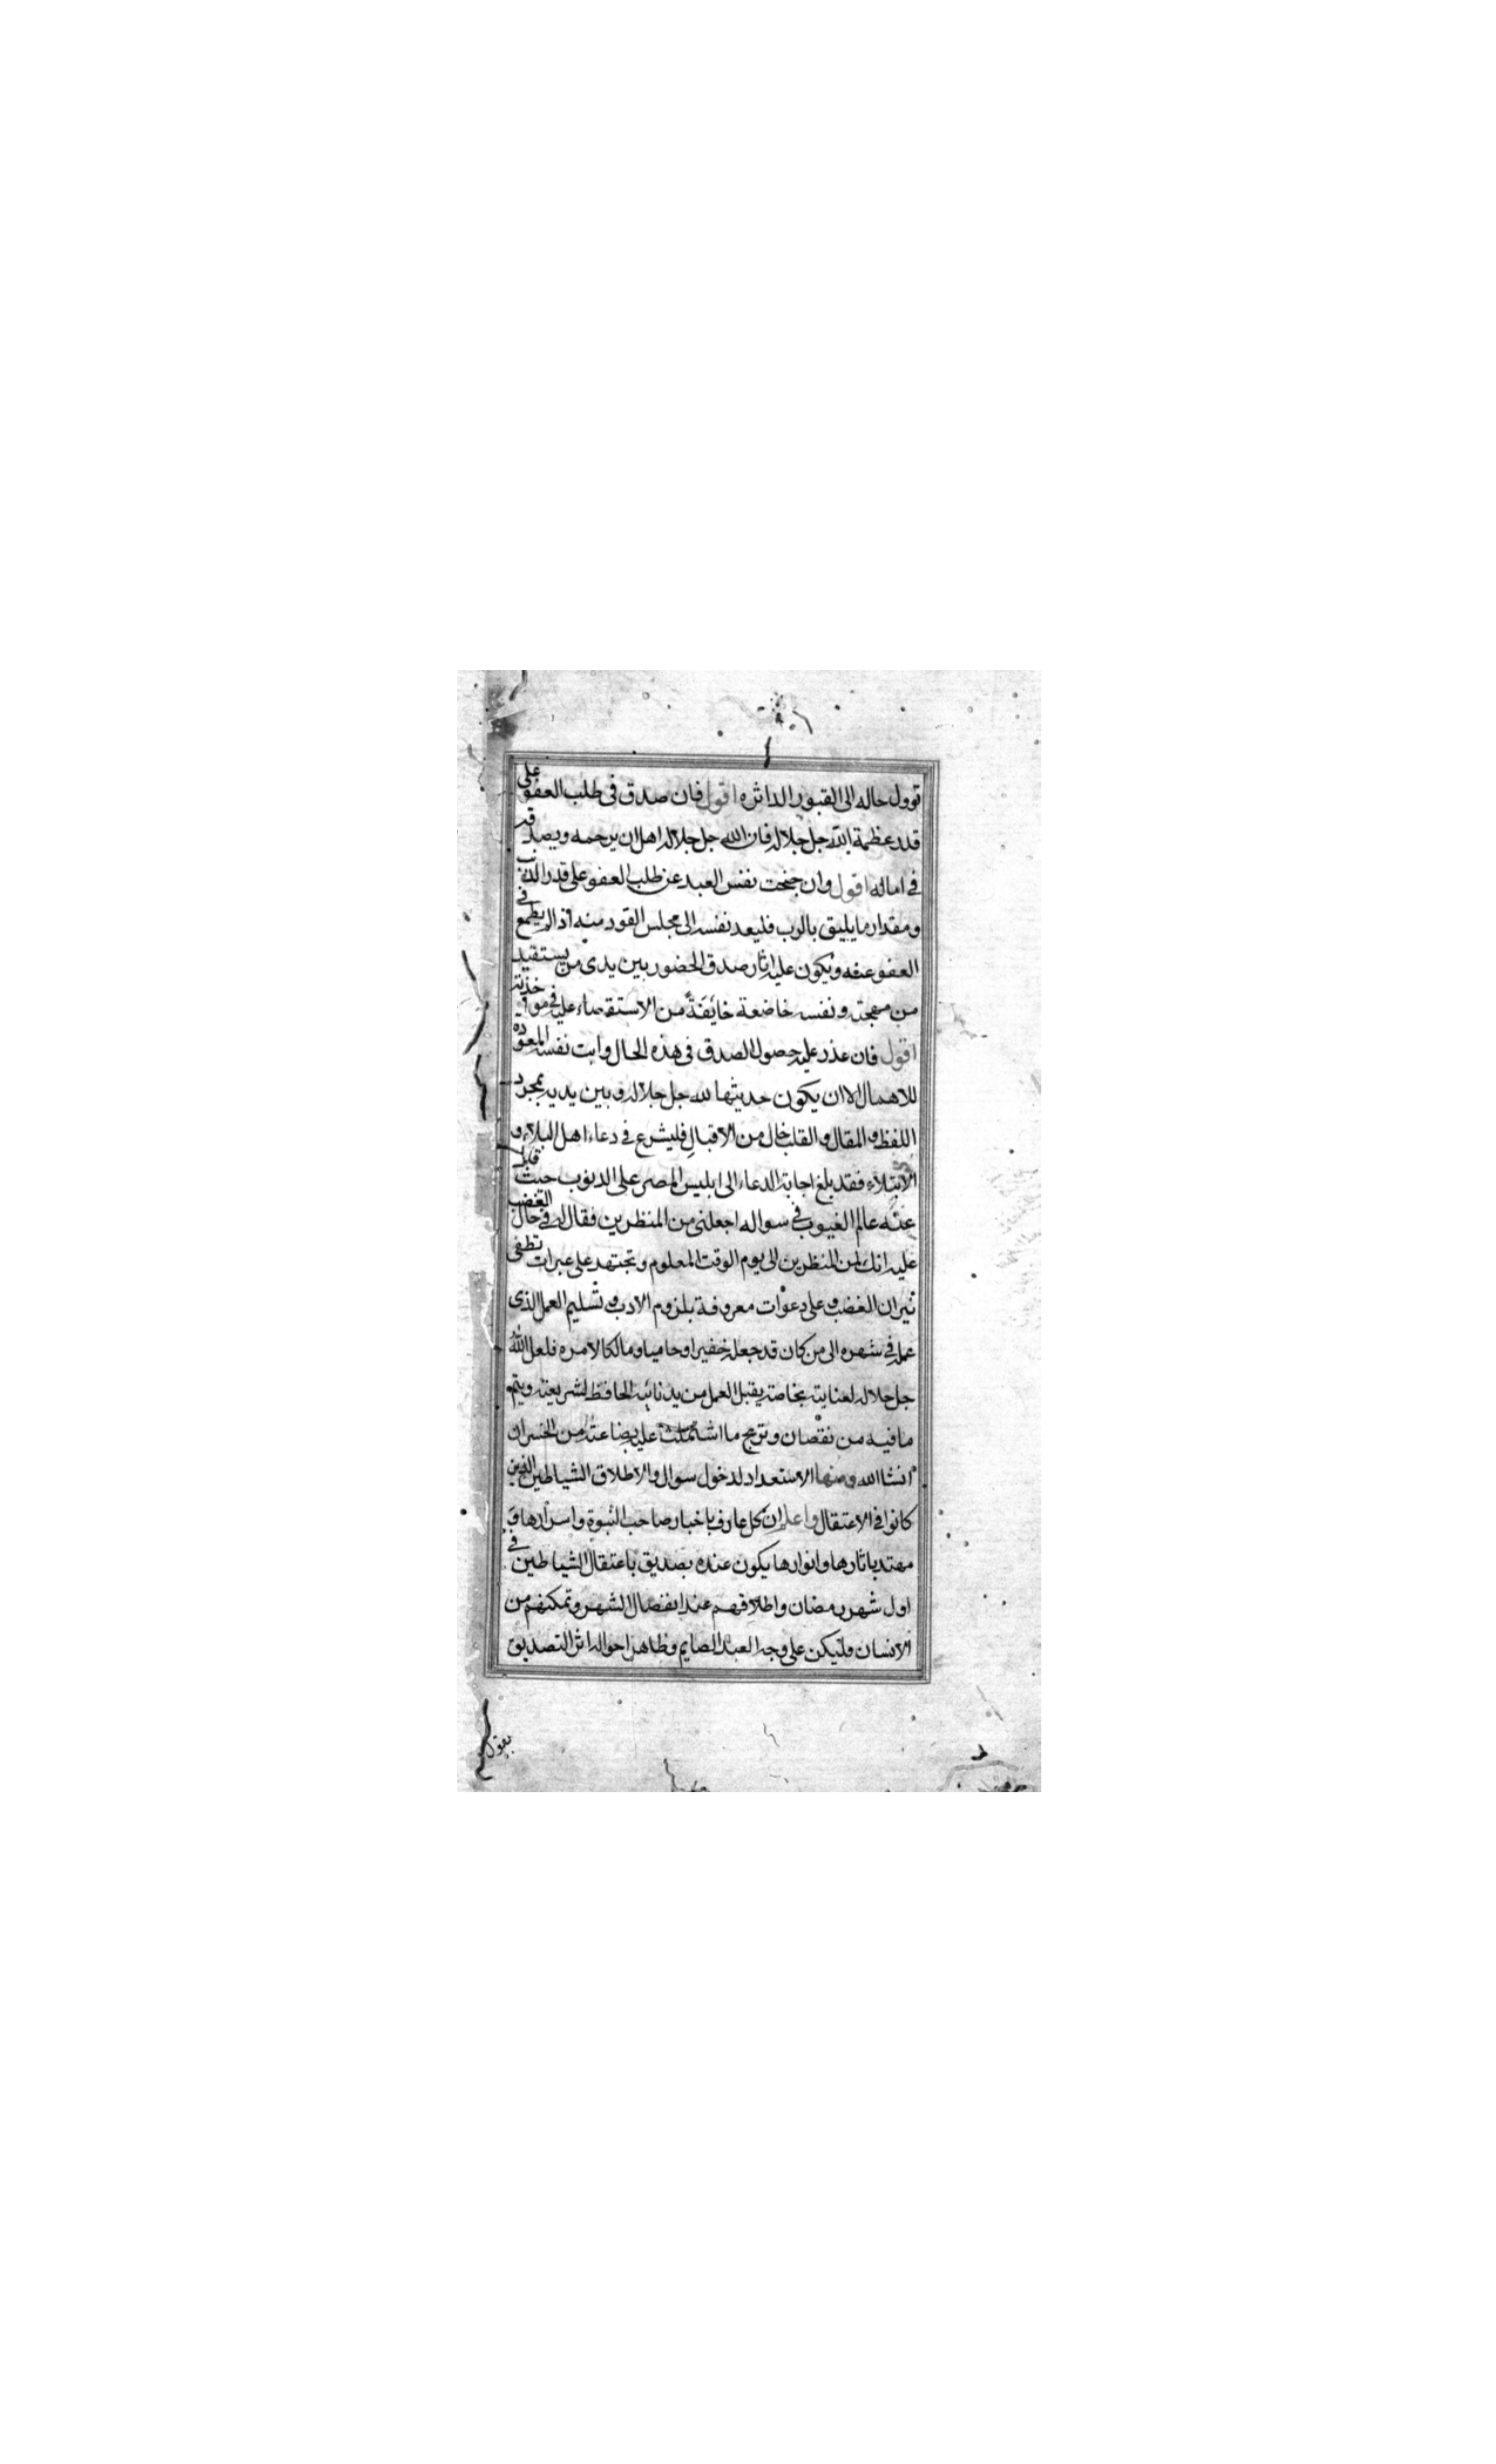 توول حاله الى القبور الداثره اقول فان صدق فى طلب العفو على
قدر عظمة الله جل جلاله فان الله جل جلاله اهل ان يرحمه ويصدقه
فى اماله اقول وان جنحت نفس العبد عن طلب العفو على قدر الذنب
ومقدار ما يليق بالرب فليعد نفسه الى مجلس القود منه اذ الم يطمع فى
العفو عنه ويكون عليه اثار صدق الحضور بين يدى من يستقيد
من مهجته ونفسه خاضعة خائفة من الاستقصاء عليه فى مواخذته
اقول فان عذر عليه حصول الصدق فى هذه الحال وابت نفسه المعوده
للاهمال الا ان يكون حديثها لله جل جلاله وبين يديه بمجرد
اللفظ والمقال والقلب خال من الاقبال فليشرع فى دعاء اهل البلاء و
الابتلاء فقد بلغ اجابة الدعاء الى ابليس المصر على الذنوب حيث قبل
عنه عالم الغيوب فى سواله اجعلنى من المنظرين فقال له فى حال الغضب
عليه انك لمن المنظرين الى يوم الوقت المعلوم وتجتهد على عبرات تطفى
نيران الغضب وعلى دعوات معروفة بلزوم الادب وتسليم العمل الذى
عمله فى شهره الى من كان قد جعله خفيرا وحاميا ومالكا لامره فلعل الله
جل جلاله لعنايته بخاصته يقبل العمل من يد نائبه الحافظ لشريعته ويتم
ما فيه من نقصان وتربح ما اشتملت عليه بضاعته من الخسران
انشا الله ومنها الاستعداد لدخول سوال والاطلاق الشياطين الذين
كانوا فى الاعتقال واعلم ان كل عارف باخبار صاحب النبوة واسرارها و
مهتد باثارها وانوارها يكون عنده تصديق باعتقال الشياطين فى
اول شهر رمضان واطلاقهم عند انفصال الشهر وتمكنهم من
الانسان فليكن على وجه العبد الصايم وظاهر احواله اثر التصديق
بقول